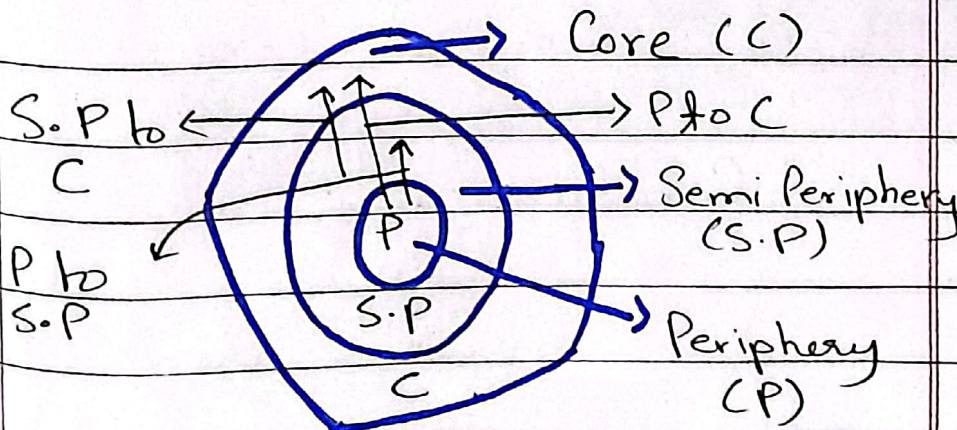 Core (C)
S.P to
C
P to C
Semi Periphery
(S.P)
P to
S.P
P
S.P
C
Periphery
(P)